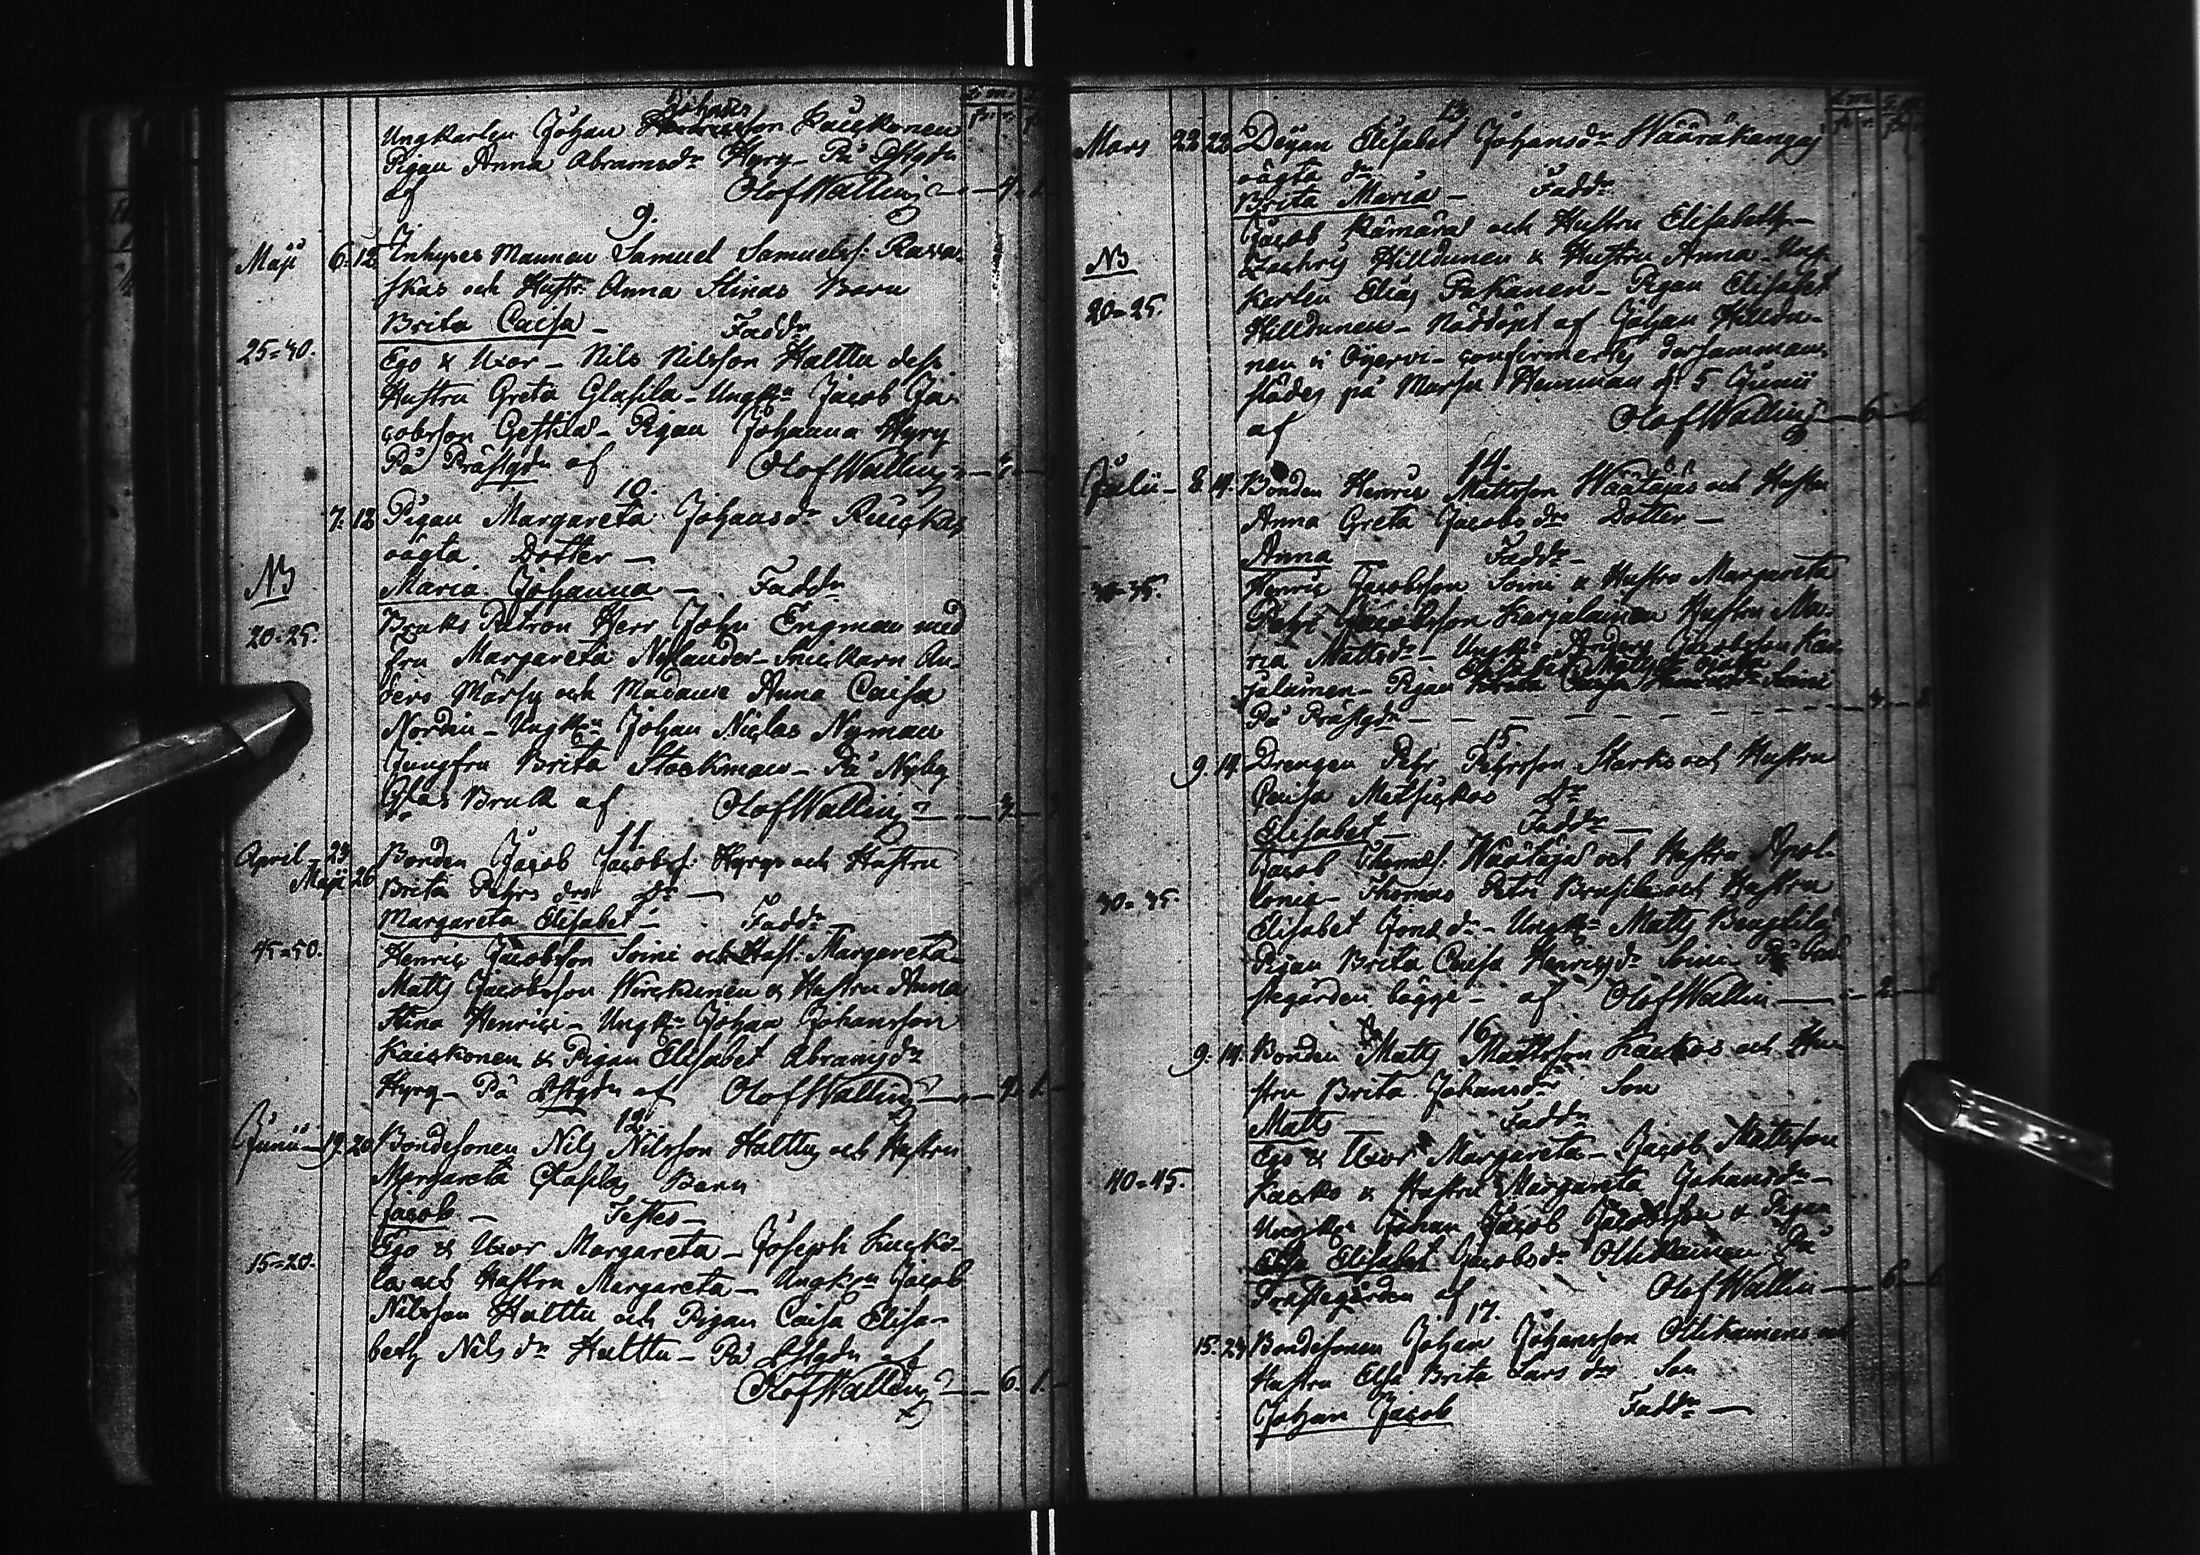 Johans
Ungkarlen Johan son Kaickonen
Pigan Anna Abramsdr Hyry På Pstgdn
af Olof Wallin 4. 1.
9.
Maji 6. 12 Inhyses Mannen Samuel Samuels:
skas och Hustr: Anna Stinas Barn
Brita Caisa — Faddr
25=30.
Ego & Uxor — Nils Nilsson Halttu dess
Hustru Greta Glasila — Ungkn Jacob Ja-
cobsson — Pigan Johanna Hyry
På Prästgdn af Olof Wallin
10.
7. 12 Pigan Margareta Johansdr Ruickas
oägta Dotter —
NB
Maria Johanna — Faddr
20=25.
Bruks Patron Herr John Engman med
fru Margareta Nylander — Snickarn An-
ders och Madame Anna Caisa
Nordin — Ungkn Johan Niclas Nyman
Jungfru Brita Stockman — På Nyby
Glas Bruk af Olof Wallin
11.
April 29 Bonden Jacob Jacobs: Hyrys och Hustru
Maji 26 Brita Pehrs drs dr —
Margareta Elisabet — Faddr
45=50.
Henric Jacobsson Soini och Hust: Margareta
Matts Jacobsson Wirckunen & Hustru Anna
Stina Henrici — Ungkn Johan Johansson
Kaickonen & Pigan Elisabet Abramsdr
Hyry — På Pstgdn af Olof Wallin 4. 1.
12.
Junii 19. 20 Bondesonen Nils Nilsson Halttus och Hustru
Margareta Glasilas Barn
Jacob — Testes —
15=20.
Ego & Uxor Margareta — Joseph Lucko-
la och Hustru Margareta — Ungkrn Jacob
Nilsson Halttu och Pigan Caisa Elisa-
beth Nils dr Halttu — På Pstgdn af
Olof Wallin 6. 1.
13.
Mars 22 22 Deijan Elisabet Johansdr Wääräkangas
oägta dr
Brita Maria — Faddr
Jacob Kämärä och Hustru Elisabeth —
NB
Zachris Hilldunen & Hustru Anna — Ung-
karlen Elias Pukanen — Pigan Elisabet
20=25.
Hilldunen — Nöddöpt af Johan Hilldu-
nen i Oijervi — confirmertes dersamman-
städes på Marsu Hemman d: 5 Junii
af Olof Wallin 6. 6
14.
Julii 8. 14. Bonden Henric Mattsson Wäätäjäs och Hustru
Anna Greta Jacobs drs Dotter —
Anna — Faddr —
Henric Jacobsson Soini & Hustru Margareta
Pehr Jacobsson Karjalainen Hustru Ma-
ria Mattsdr — Ungkn Anders Jacobsson Kar-
jalainen — Pigan
På Prästgdn —
15
9. 14 Drengen Pehr Pehrsson Starks och Hustru
Caisa Matsickas dr
Elisabet — Faddr —
Jacob Thomas: Wäätäjä och Hustru Apol-
lonia — Thomas Petri Brusila och Hustru
40=45.
Elisabet Jonæ dr — Ungkn Matts
Pigan Brita Caisa Henricsdr Soini — På Prä-
stegården bägge — af Olof Wallin 2.
16
9. 14. Bonden Matts Mattsson Lackos och Hu-
stru Brita Johansdr Son
Matts — Faddr
Ego & Uxor Margareta — Jacob Mattsson
40=45.
Lacko & Hustru Margareta Johansdr —
Ungkn Johan Jacob Jacobsson & Pigan
Elsa Elisabet Jacobsdr Ollikainen På
Prästegården af Olof Wallin 6.
17.
15. 24 Bondesonen Johan Johansson Ollikainens och
Hustru Elsa Brita Lars drs Son
Johan Jacob Faddr —